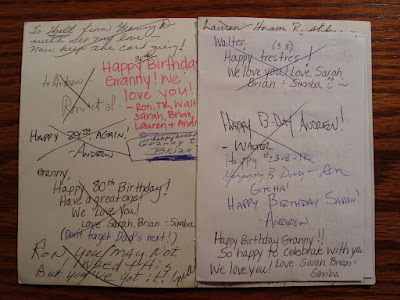 To Walt from Granny
with all my love -
Now keep the card going!
to Andrew
Ron et al
Happy Birthday
Granny! We
love you!
- Ron, TR, Walt
Sarah, Brian,
Lauren + Andrew
HAPPY 29TH AGAIN!
- ANDREW
Granny to
Brian
Granny,
Happy 80th Birthday!
Have a great one!
We love you!
Love Sarah, Brian - Simba
(Don't forget Dad's next!)
Ron you may not
need it!
But you've got it!
Walter, (38)
Happy tres tres!
We love you! Love Sarah,
Brian - Simba
HAPPY B-DAY ANDREW!
- WALTER
HAPPY
B Day - Ron
GOTCHA!
HAPPY BIRTHDAY SARAH!
- ANDREW
Happy Birthday Granny!!
So happy to celebrate with you
We love you! Love Sarah, Brian -
Simba